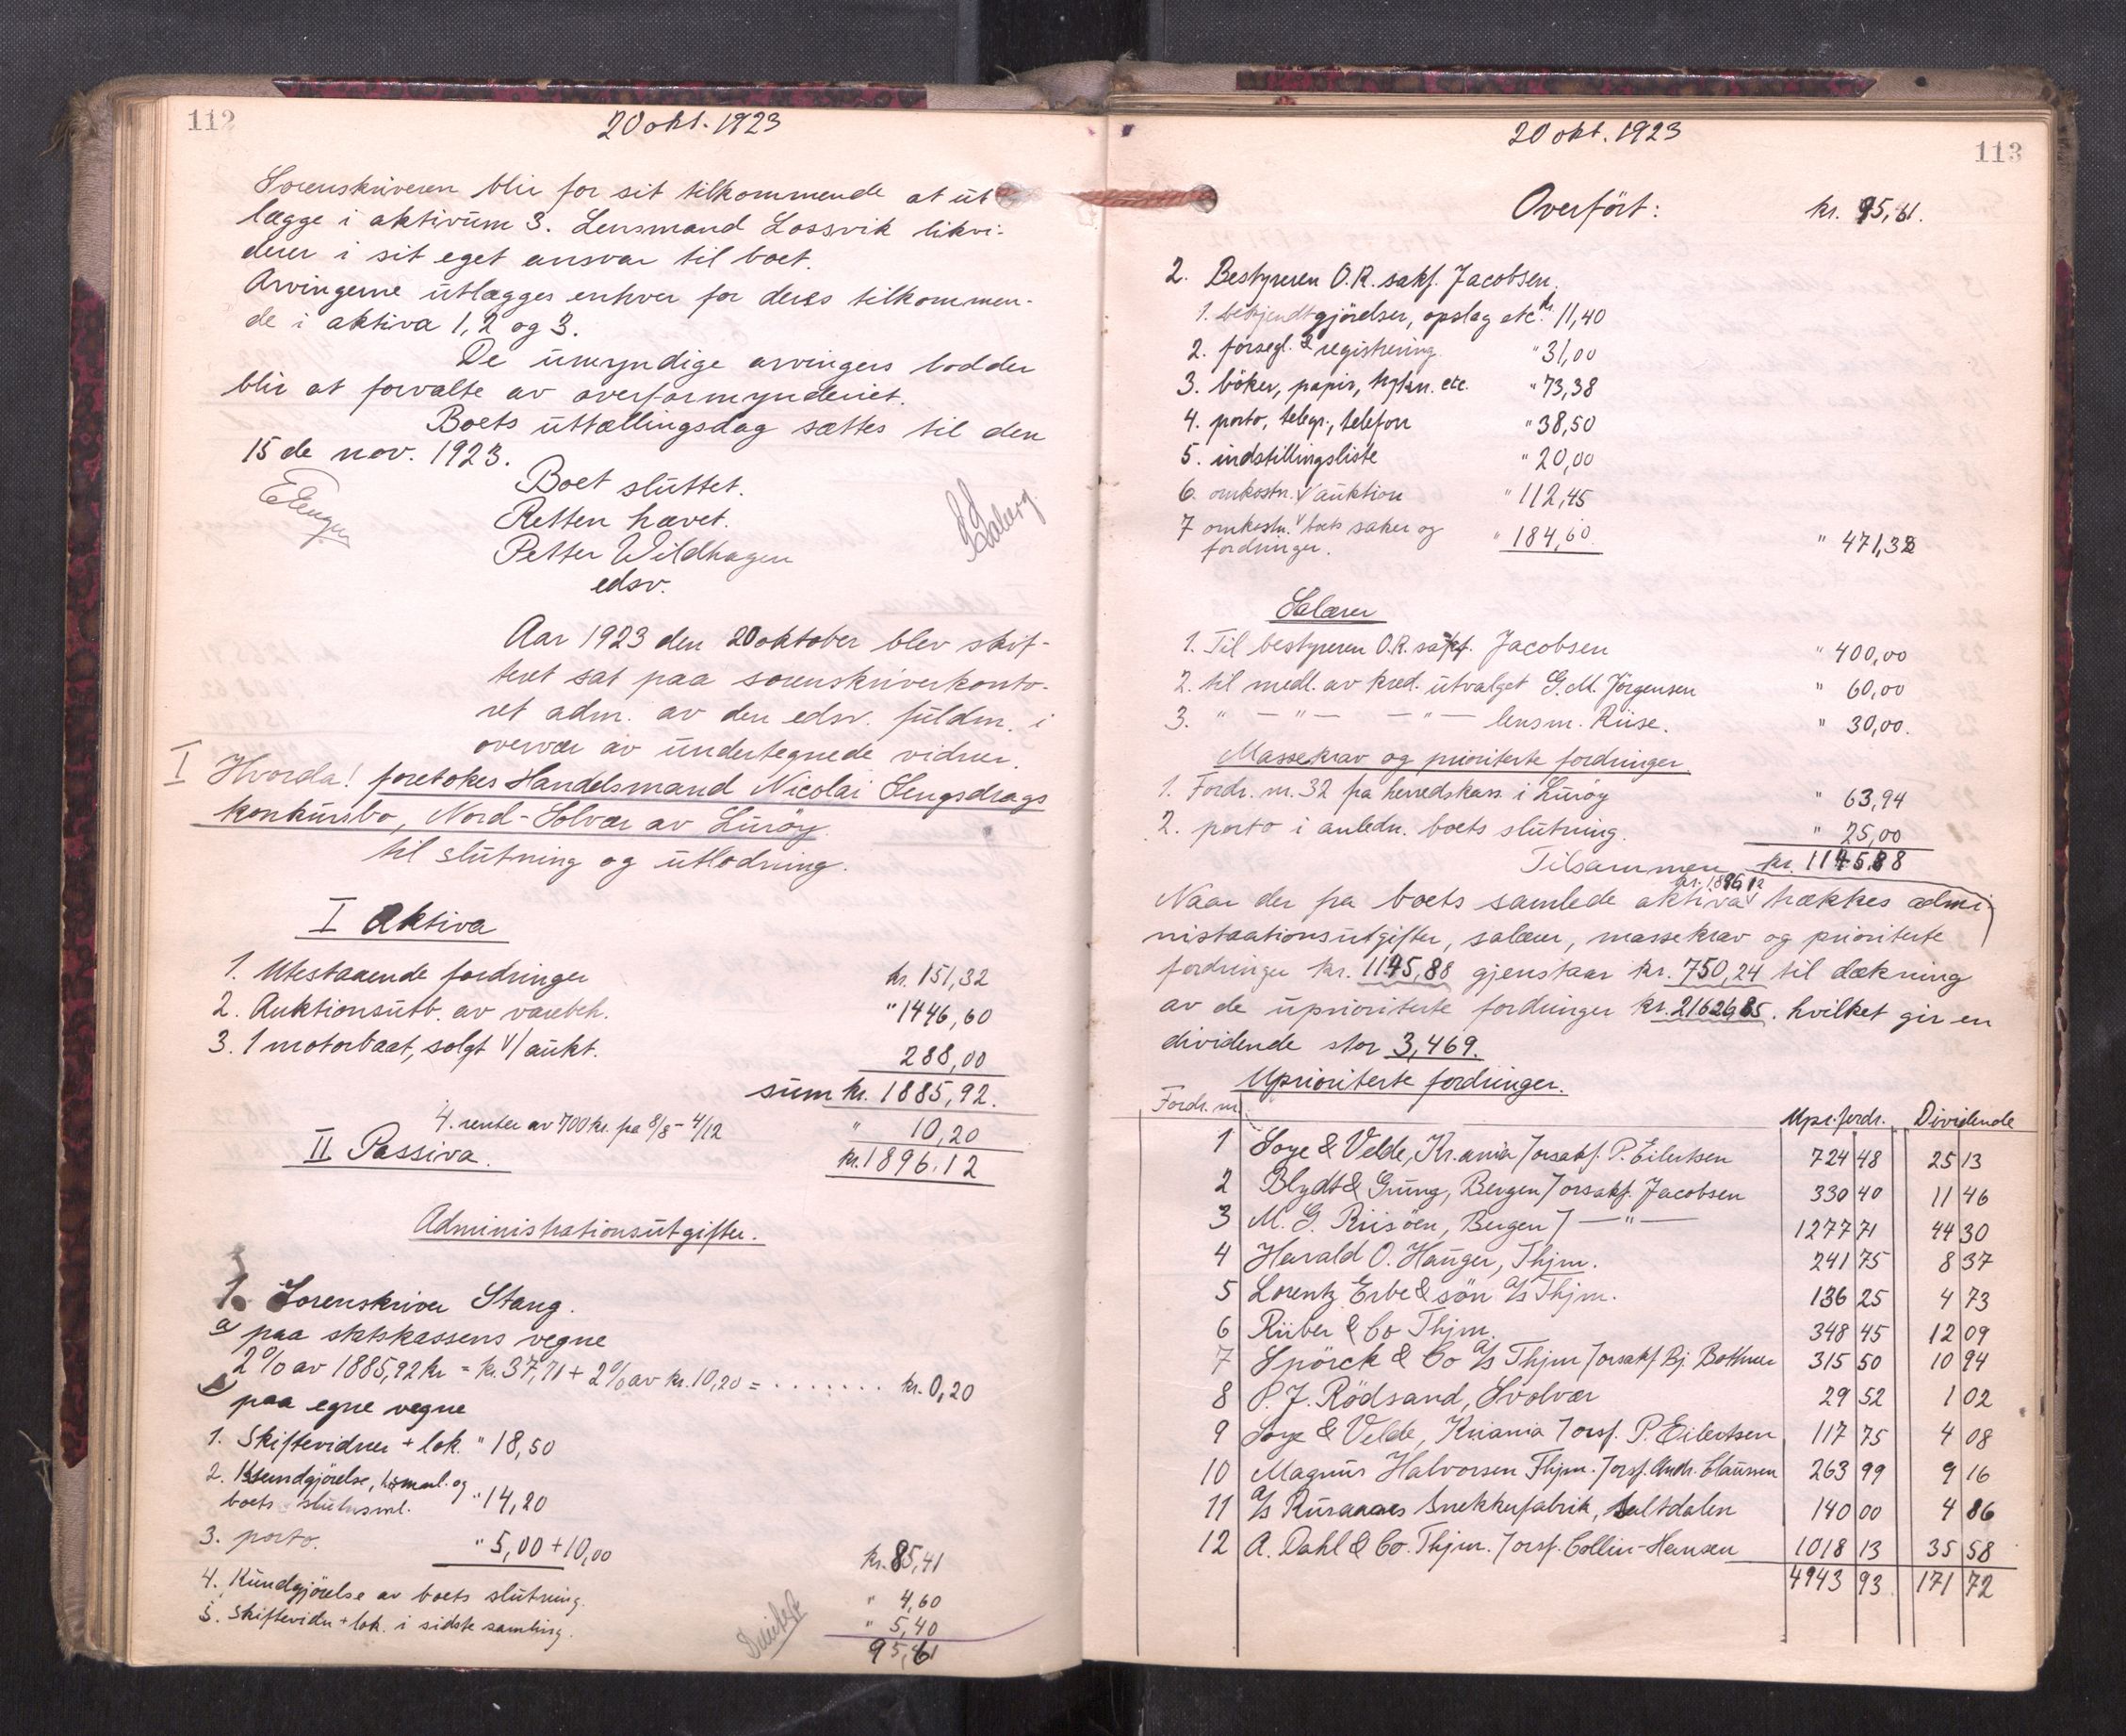 112
20 okt. 1923
Sorenskriveren blir for sit tilkommende at ut
lægge i aktivum 3. Lensmand Lossvik likvi-
derer i sit eget ansvar til boet.
Arvingerne utlægges enhver for deres tilkommen-
de i aktiva 1, 2 og 3.
De umyndige arvingers lodder
blir at forvalte av overformynderiet.
Boets uttællingsdag sættes til den
15de nov. 1923.
Boet sluttet.
Retten hævet.
Petter Wildhagen
edsv.
Aar 1923 den 20 oktober blev skif-
teret sat paa sorenskriverkonto-
ret adm. av den edsv. fuldm. i
overvær av undertegnede vidner.
I Hvorda! foretokes Handelsmand Nicolai Lengsdrags
konkursbo, Nord-Solvær av Lurøy
til slutning og utlodning.
I Aktiva
1. Utestaaende fordringer kr. 151,32
2. Auktionsutb. av varebeh. " 1446,60
3. 1 motorbaat, solgt v/ aukt. 288,00
sum kr. 1885,92.
4. renter av 700 kr. fra 8/8 - 4/12 " 10,20
II Passiva. kr. 1896,12
Administrationsutgifter.
1. Sorenskriver Stang.
a paa statskassens vegne
2% av 1885,92 kr = kr. 37,71 + 2% av kr. 10,20 = ....... kr. 0,20
b paa egne vegne
1. Skiftevidner + lok. " 18,50
2. Kundgjörelse, og
boets slutn. " 14,20
3. porto. " 5,00 + 10,00 kr. 85,41
4. Kundgjörelse av boets slutning. " 4,60
5. Skiftevidn + lok. i sidste samling. " 5,40
95,61
113
20 okt. 1923
Overfört: kr. 95,61.
2. Bestyreren O.R. sakf. Jacobsen.
1. bekjendtgjörelser, opslag etc. kr. 11,40
2. forsegl. & registrering. " 31,00
3. böker, papir, etc. " 73,38
4. porto, telegr., telefon " 38,50
5. indstillingsliste " 20,00
6. omkostn. v/ auktion " 112,45
7 omkostn. v/ boets saker og
fordringer. " 184,60 " 471,33
Salærer
1. Til bestyreren O.R. sakf. Jacobsen " 400,00
2. til medl. av kred. utvalget G. M. Jörgensen " 60,00
3. " — " — — " — lensm. Riise. " 30,00.
Massekrav og prioriterte fordringer.
1. Fordr. nr. 32 fra herredskass. i Luröy " 63,94
2. porto i anledn. boets slutning. " 25,00
Tilsammen kr. 1145.88
kr. 1896,12
Naar der fra boets samlede aktiva v trækkes admi-
nistrationsutgifter, salærer, massekrav og prioriterte
fordringer kr. 1145,88 gjenstaar kr. 750,24 til dækning
av de uprioriterte fordringer kr. 21626,85. hvilket gir en
dividende stor 3,469.
Uprioriterte fordringer.
Fordr. nr. Upr. fordr. Dividende
1 Soye & Velde, Kr.ania / orsakf. P. Eilertsen 724 48 25 13
2 Blydt & Grung, Bergen / orsakf. Jacobsen 330 40 11 46
3 M. G. Riisöen, Bergen / — " — 1277 71 44 30
4 Harald O. Hauger, Thjm. 241 75 8 37
5 Lorentz Erbe & sön A/S Thjm. 136 25 4 73
6 Riiber & Co Thjm. 348 45 12 09
7 Spörck & Co A/S Thjm / orsakf Bj. Bothner 315 50 10 94
8 P. J. Rödsand, Svolvær 29 52 1 02
9 Soye & Velde, Kriania / orsf. P. Eilertsen 117 75 4 08
10 Magnus Halvorsen Thjm. / orsf. Andr. Claussen 263 99 9 16
11 A/S Rusaanes Snekkerfabrik, Saltdalen 140 00 4 86
12 A. Dahl & Co. Thjm. / orsf. Collin-Hansen 1018 13 35 58
4943 93 171 72